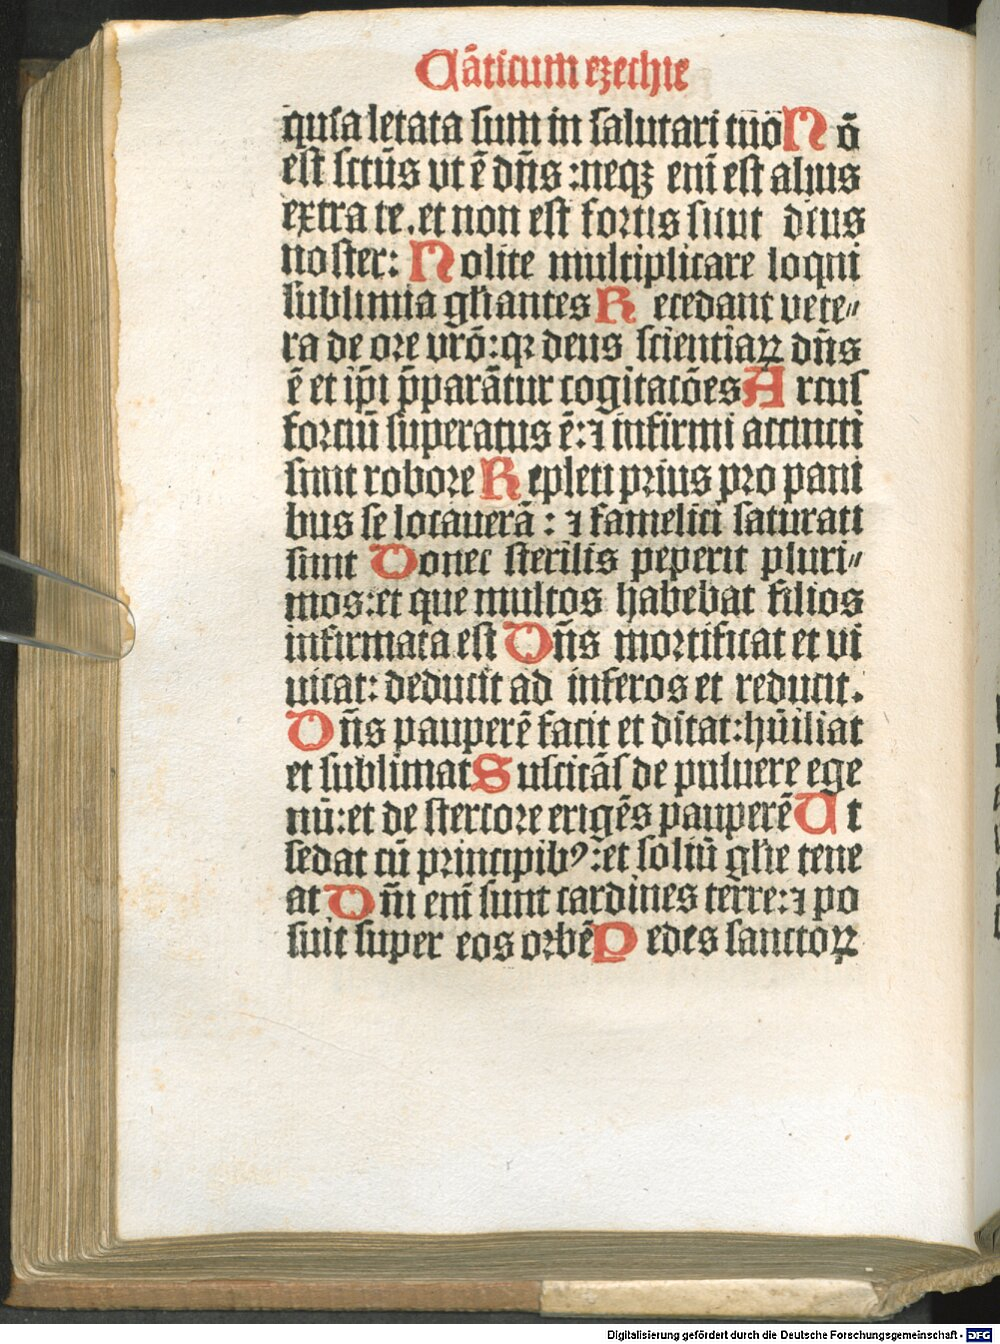 Cāticum ezechie
quia letata sum in salutari tuo Nō
est sctūs vt ē dn̄s :neqz enī est alius
extra te. et non est fortis sicut deus
noster: Nolite multiplicare loqui
sublimia gl̄iantes Recedant vete〃
ra de ore vrō:qꝛ deus scientiaꝝ dn̄s
ē et ip̄i p̄parātur cogitatōes Arcus
fortiū superatus ē:⁊ infirmi accincti
sunt robore Repleti prius pro pani
bus se locauerā : ⁊ famelici saturati
sunt Donec sterilis peperit pluri〃
mos:et que multos habebat filios
infirmata est Dn̄s mortificat et vi
uicat: deducit ad inferos et reducit.
Dn̄s pauperē facit et ditat:hūiliat
et sublimat Suscitās de puluere ege
nū:et de stercore erigēs pauperē Ut
sedat cū principibꝰ:et soliū gl̄ie tene
at Dn̄i enī sunt cardines terre:⁊ po
suit super eos orbē Pedes sanctoꝝ
Digitalisierung gefördert durch die Deutsche Forschungsgemeinschaft - DFG